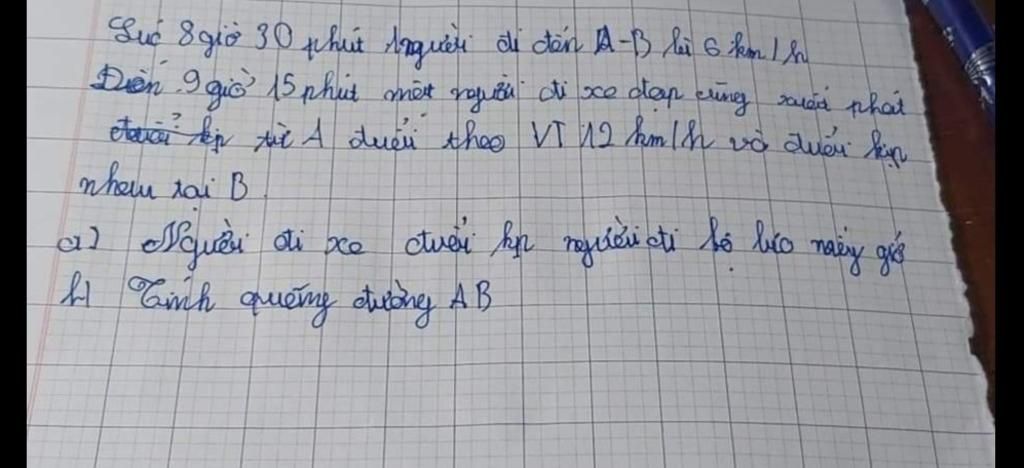 Lúc 8 giờ 30 phút 1 người đi đến A-B là 6 km/h
Đến 9 giờ 15 phút một người đi xe đạp cũng xuất phát
từ A đuổi theo VT 12 km/h và đuổi kịp
nhau tại B
a) Người đi xe đuổi kịp người đi bộ lúc mấy giờ
b) Tính quãng đường AB